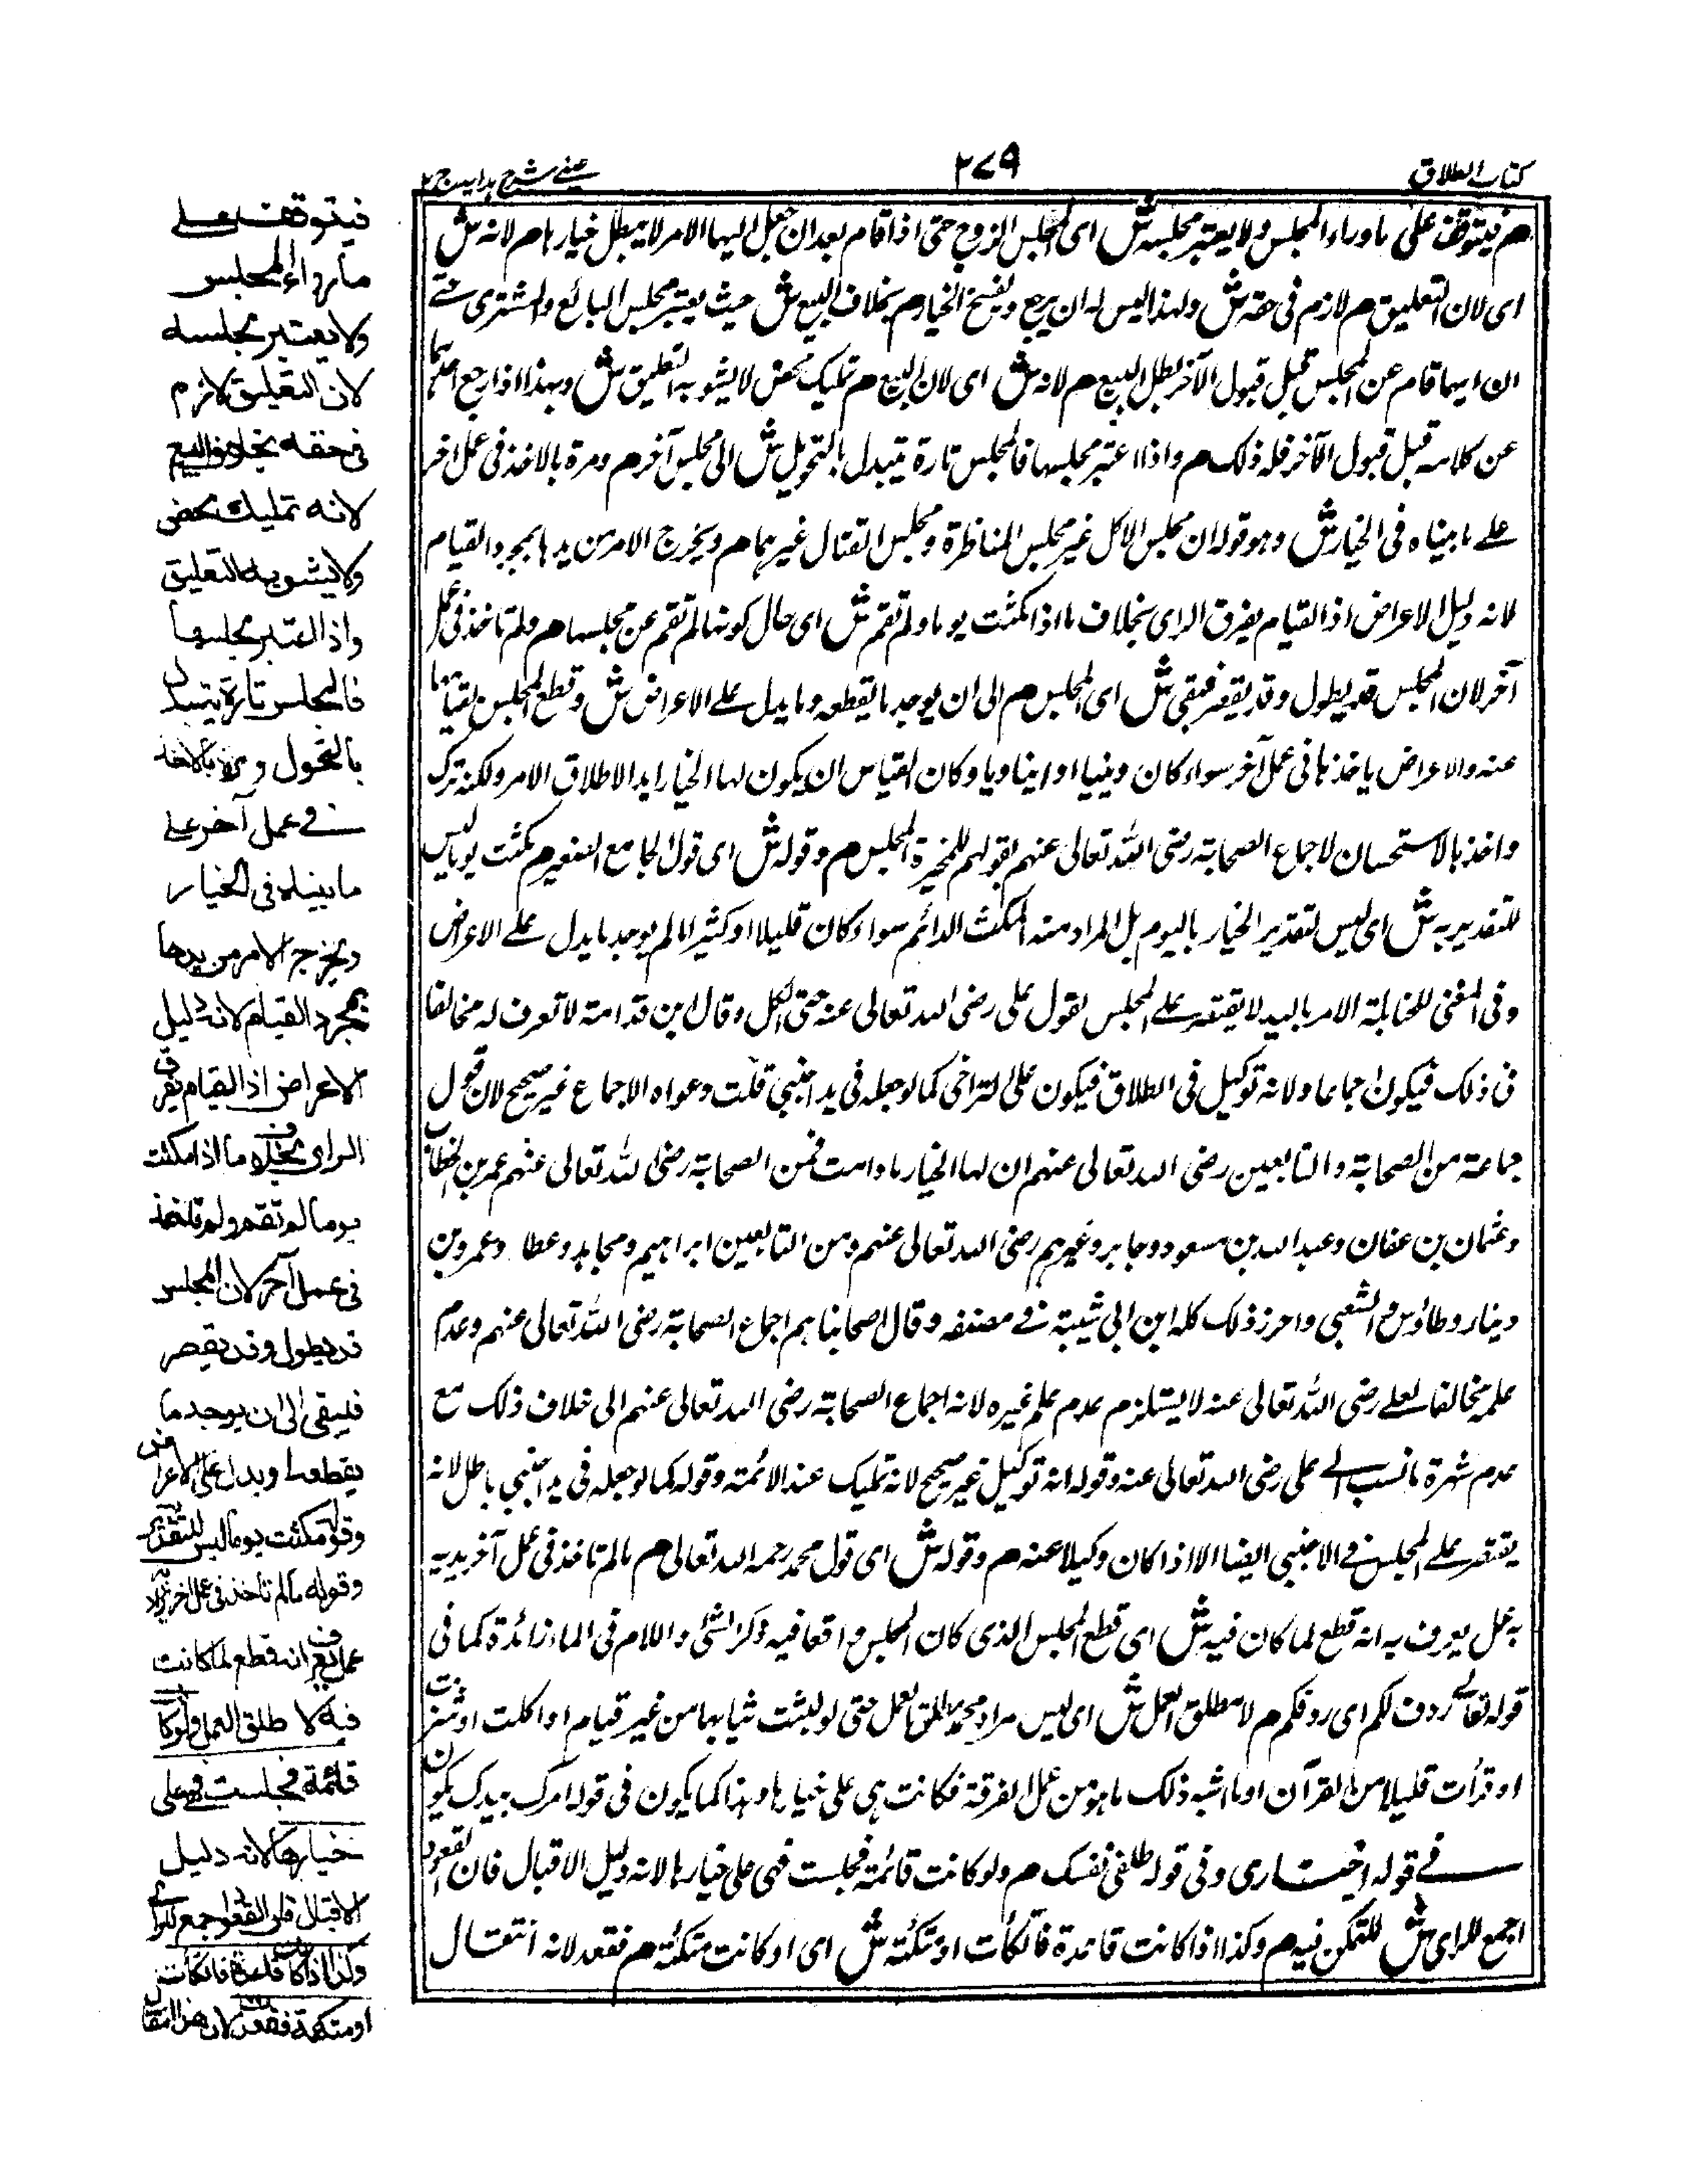 كتاب الطلاق
٢٧٩
عينى شرح هداية ج٢
م فيتوقف على ما وراء المجلس ولا يعتبر مجلسه ش اى مجلس الزوج حتى اذا قام بعد ان جعل اليها الامر لا يبطل خيارها م لانه ش
اى لان التعليق م لازم فى حقه ش ولهذا ليس له ان يرجع ولفسخ الخيار م بخلاف البيع ش حيث يعتبر مجلس البائع والمشترى حتى
ان ايهما قام عن المجلس قبل قبول الآخر بطل البيع م لانه ش اى لان البيع م تمليك محض لا يشوبه التعليق ش وبهذا اذا رجع احدهما
عن كلامه قبل قبول الآخر فله ذلك م واذا اعتبر مجلسها فالمجلس تارة يتبدل بالتحويل ش الى مجلس آخر م ومرة بالاخذ فى عمل اخر
على ما بيناه فى الخيار ش وهو قوله ان مجلس الاكل غير مجلس المناظرة ومجلس القتال غيرهما م ويخرج الامر من يدها بمجرد القيام
لانه دليل الاعراض اذ القيام يفرق الراى بخلاف ما اذا مكثت يوما ولم تقم ش اى حال كونها لم تقم عن مجلسها م ولم تاخذ فى عمل
آخر لان المجلس قد يطول وقد يقصر فيبقى ش اى المجلس م الى ان يوجد ما يقطعه وما يدل على الاعراض ش وقطع المجلس بقيامها
عنه والاعراض ياخذها فى عمل آخر سواء كان دينيا او دنياويا وكان القياس ان يكون لها الخيار ابدا لاطلاق الامر ولكنه ترك
واخذ بالاستحسان لاجماع الصحابة رضى الله تعالى عنهم بقولهم للمخيرة المجلس م وقوله ش اى قول الجامع الصغير م مكثت يوما ليس
للتقدير به ش اى ليس لتقدير الخيار باليوم بل المراد منه المكث الدائم سواء كان قليلا او كثيرا ما لم يوجد ما يدل على الاعراض
وفى المغنى للحنابلة الامر باليد لا يقتصر على المجلس لقول على رضى الله تعالى عنه حتى ينكل وقال ابن قدامة لا تعرف له مخالفا
فى ذلك فيكون اجماعا ولانه توكيل فى الطلاق فيكون على التراخى كما لو جعله فى يد اجنبى قلت دعواه الاجماع غير صحيح لان قول
جماعة من الصحابة والتابعين رضى الله تعالى عنهم ان لها الخيار ما دامت فمن الصحابة رضى الله تعالى عنهم عمر بن الخطاب
وعثمان بن عفان وعبد الله بن مسعود وجابر وغيرهم رضى الله تعالى عنهم ومن التابعين ابراهيم ومجاهد وعطا وعمرو بن
دينار وطاؤس والشعبى واحرز ذلك كله ابن ابى شيبة فى مصنفه وقال اصحابنا هم اجماع الصحابة رضى الله تعالى عنهم وعدم
علمه مخالفا لعلى رضى الله تعالى عنه لا يستلزم عدم علم غيره لانه اجماع الصحابة رضى الله تعالى عنهم الى خلاف ذلك مع
عدم شهرة ما نسب الى على رضى الله تعالى عنه وقوله انه توكيل غير صحيح لانه تمليك عند الائمة وقوله كما لو جعله فى يد اجنبى باطل لانه
يقتصر على المجلس فى الاجنبى ايضا الا اذا كان وكيلا عنه م وقوله ش اى قول محمد رحمه الله تعالى م ما لم تاخذ فى عمل آخر يريد
به عمل يعرف به انه قطع لما كان فيه ش اى قطع المجلس الذى كان المجلس واقعا فيه ذكر الشئ واللام فى الما زائدة كما فى
قوله تعالى ردف لكم اى ردفكم م لا مطلق العمل ش اى ليس مراد محمد مطلق العمل حتى لو لبثت ثيابها من غير قيام او اكلت او شربت
او قرأت قليلا من القرآن او ما اشبه ذلك ما هو من عمل الفرقة فكانت هى على خيارها وهذا كما يكون فى قوله امرك بيدك يكون
فى قوله اختارى وفى قوله طلقى نفسك م ولو كانت قائمة فجلست فهى على خيارها لانه دليل الاقبال فان القعود
اجمع للراى ش للتمكن فيه م وكذا اذا كانت قاعدة فاتكأت او متكئة ش اى او كانت متكئة م فقعد لانه انتقال
فيتوقف على
ما وراء المجلس
ولا يعتبر مجلسه
لان التعليق لازم
فى حقه بخلاف البيع
لانه تمليك محض
ولا يشوبه التعليق
واذا اعتبر مجلسها
فالمجلس تارة يتبدل
بالتحول ومرة بالاخذ
فى عمل آخر على
ما بيناه فى الخيار
ويخرج الامر من يدها
بمجرد القيام لانه دليل
الاعراض اذ القيام يفرق
الراى بخلاف ما اذا مكثت
يوما لم تقم ولم تاخذ
فى عمل آخر لان المجلس
قد يطول وقد يقصر
فيبقى الى ان يوجد ما
يقطعه او يدل على الاعراض
وقوله مكثت يوما ليس للتقدير به
وقوله ما لم تاخذ فى عمل اخر يراد به
عمل يعرف انه قطع لما كانت
فيه لا مطلق العمل ولو كانت
قائمة فجلست فهى على
خيارها لانه دليل
الاقبال فان القعود اجمع للراى
وكذا اذا كانت قاعدة فاتكأت
او متكئة فقعدت لان هذا انتقال